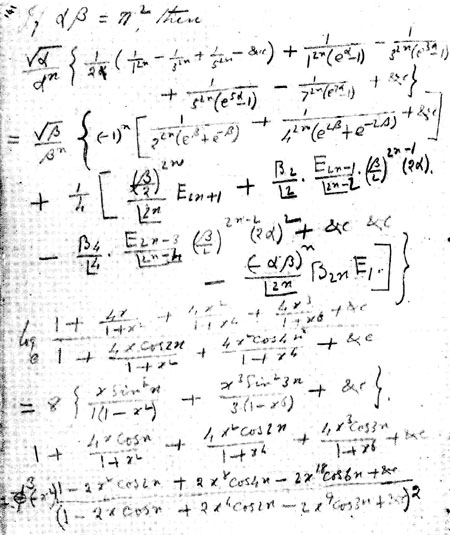 If αβ = π², then
√α/αⁿ { 1/2α (1/1²ⁿ − 1/3²ⁿ + 1/5²ⁿ − &c) + 1/(1²ⁿ(e^α−1)) − 1/(3²ⁿ(e^3α−1))
+ 1/(5²ⁿ(e^5α−1)) − 1/(7²ⁿ(e^7α−1)) + &c }
= √β/βⁿ { (−1)ⁿ [ 1/(2²ⁿ(e^β+e^−β)) + 1/(4²ⁿ(e^2β+e^−2β)) + &c ]
+ 1/4 [ (β/2)²ⁿ/|2n E₂ₙ₊₁ + B₂/|2 · E₂ₙ₋₁/|2n−2 (β/2)²ⁿ⁻¹ (2α).
− B₄/|4 · E₂ₙ₋₃/|2n−4 (β/2)²ⁿ⁻² (2α)² + &c &c
− (−αβ)ⁿ/|2n B₂ₙ E₁. ] }
log_e (1 + 4x/(1+x²) + 4x²/(1+x⁴) + 4x³/(1+x⁶) + &c) / (1 + 4x cos2n/(1+x²) + 4x² cos4n/(1+x⁴) + &c)
= 8 { x sin²n/(1(1−x²)) + x³ sin²3n/(3(1−x⁶)) + &c }.
1 + 4x cos n/(1+x²) + 4x² cos2n/(1+x⁴) + 4x³ cos3n/(1+x⁶) + &c
= φ³(−x²) (1 − 2x² cos2n + 2x⁸ cos4n − 2x¹⁸ cos6n + &c) / (1 − 2x cos n + 2x⁴ cos2n − 2x⁹ cos3n + &c)²